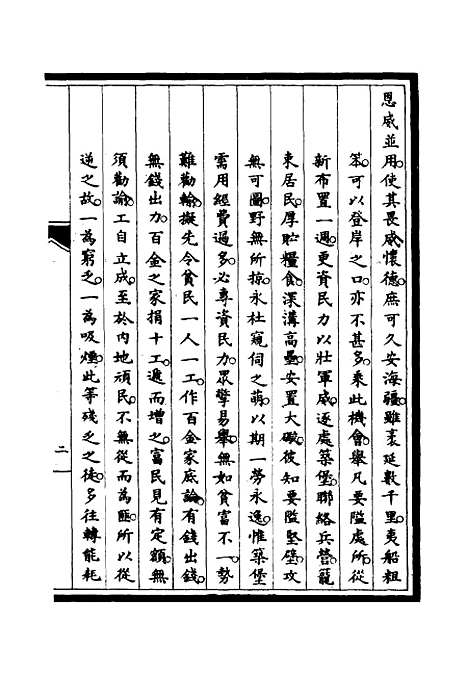 恩威並用。使其畏威懷德。庶可久安海疆。雖袤延數千里。夷船粗
笨。可以登岸之口。亦不甚多。乘此機會。舉凡要隘處所。從
新布置一週。更資民力以壯軍威。逐處築堡。聯絡兵營。籠
束居民。厚貯糧食。深溝高壘。安置大礮。彼知要隘堅壁。攻
無可圖。野無所掠。永杜窺伺之萌。以期一勞永逸。惟築堡
需用經費過多。必專資民力。眾擎易舉。無如貧富不一。勢
難勸輸。擬先令貧民一人一工。作百金家底論。有錢出錢。
無錢出力。百金之家捐十工。遞而增之。富民見有定額。無
須勸諭。工自立成。至於內地頑民。不無從而為匪。所以從
逆之故。一為窮乏。一為吸煙。此等殘乏之徒。多往轉能耗
二